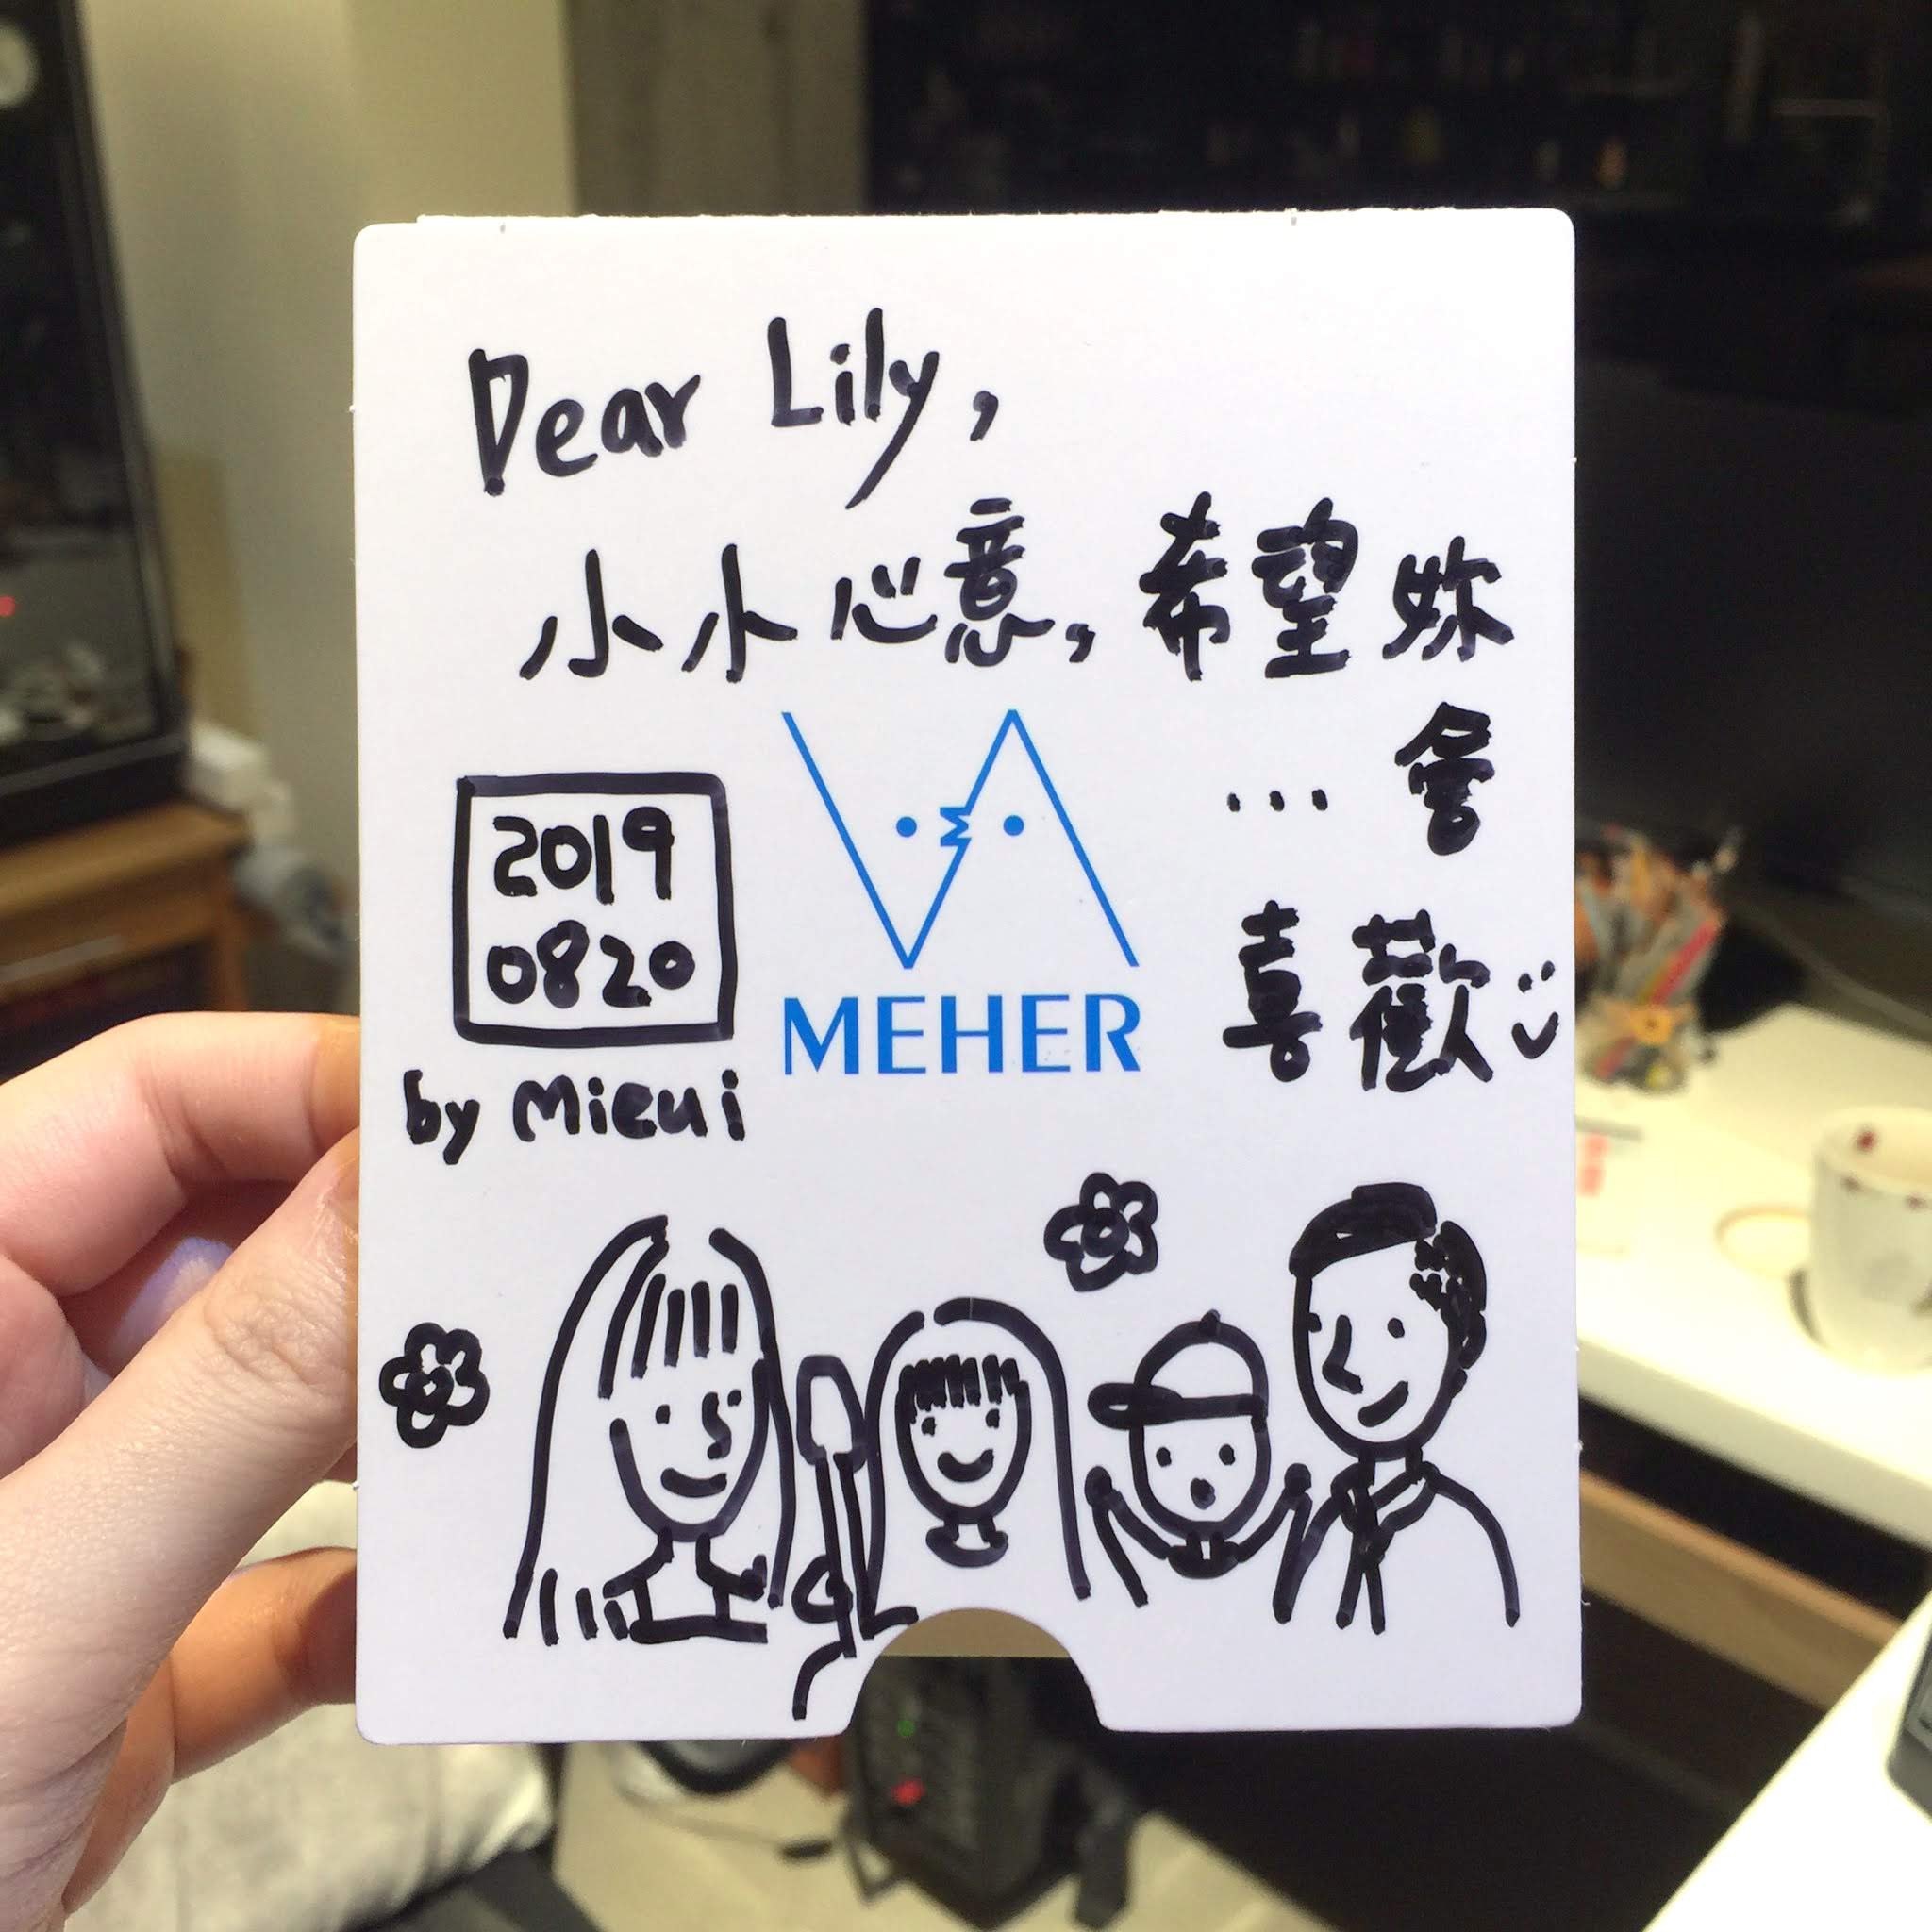 Dear Lily,
小小心意,希望妳
...會
喜歡
2019
0820
MEHER
by Micui